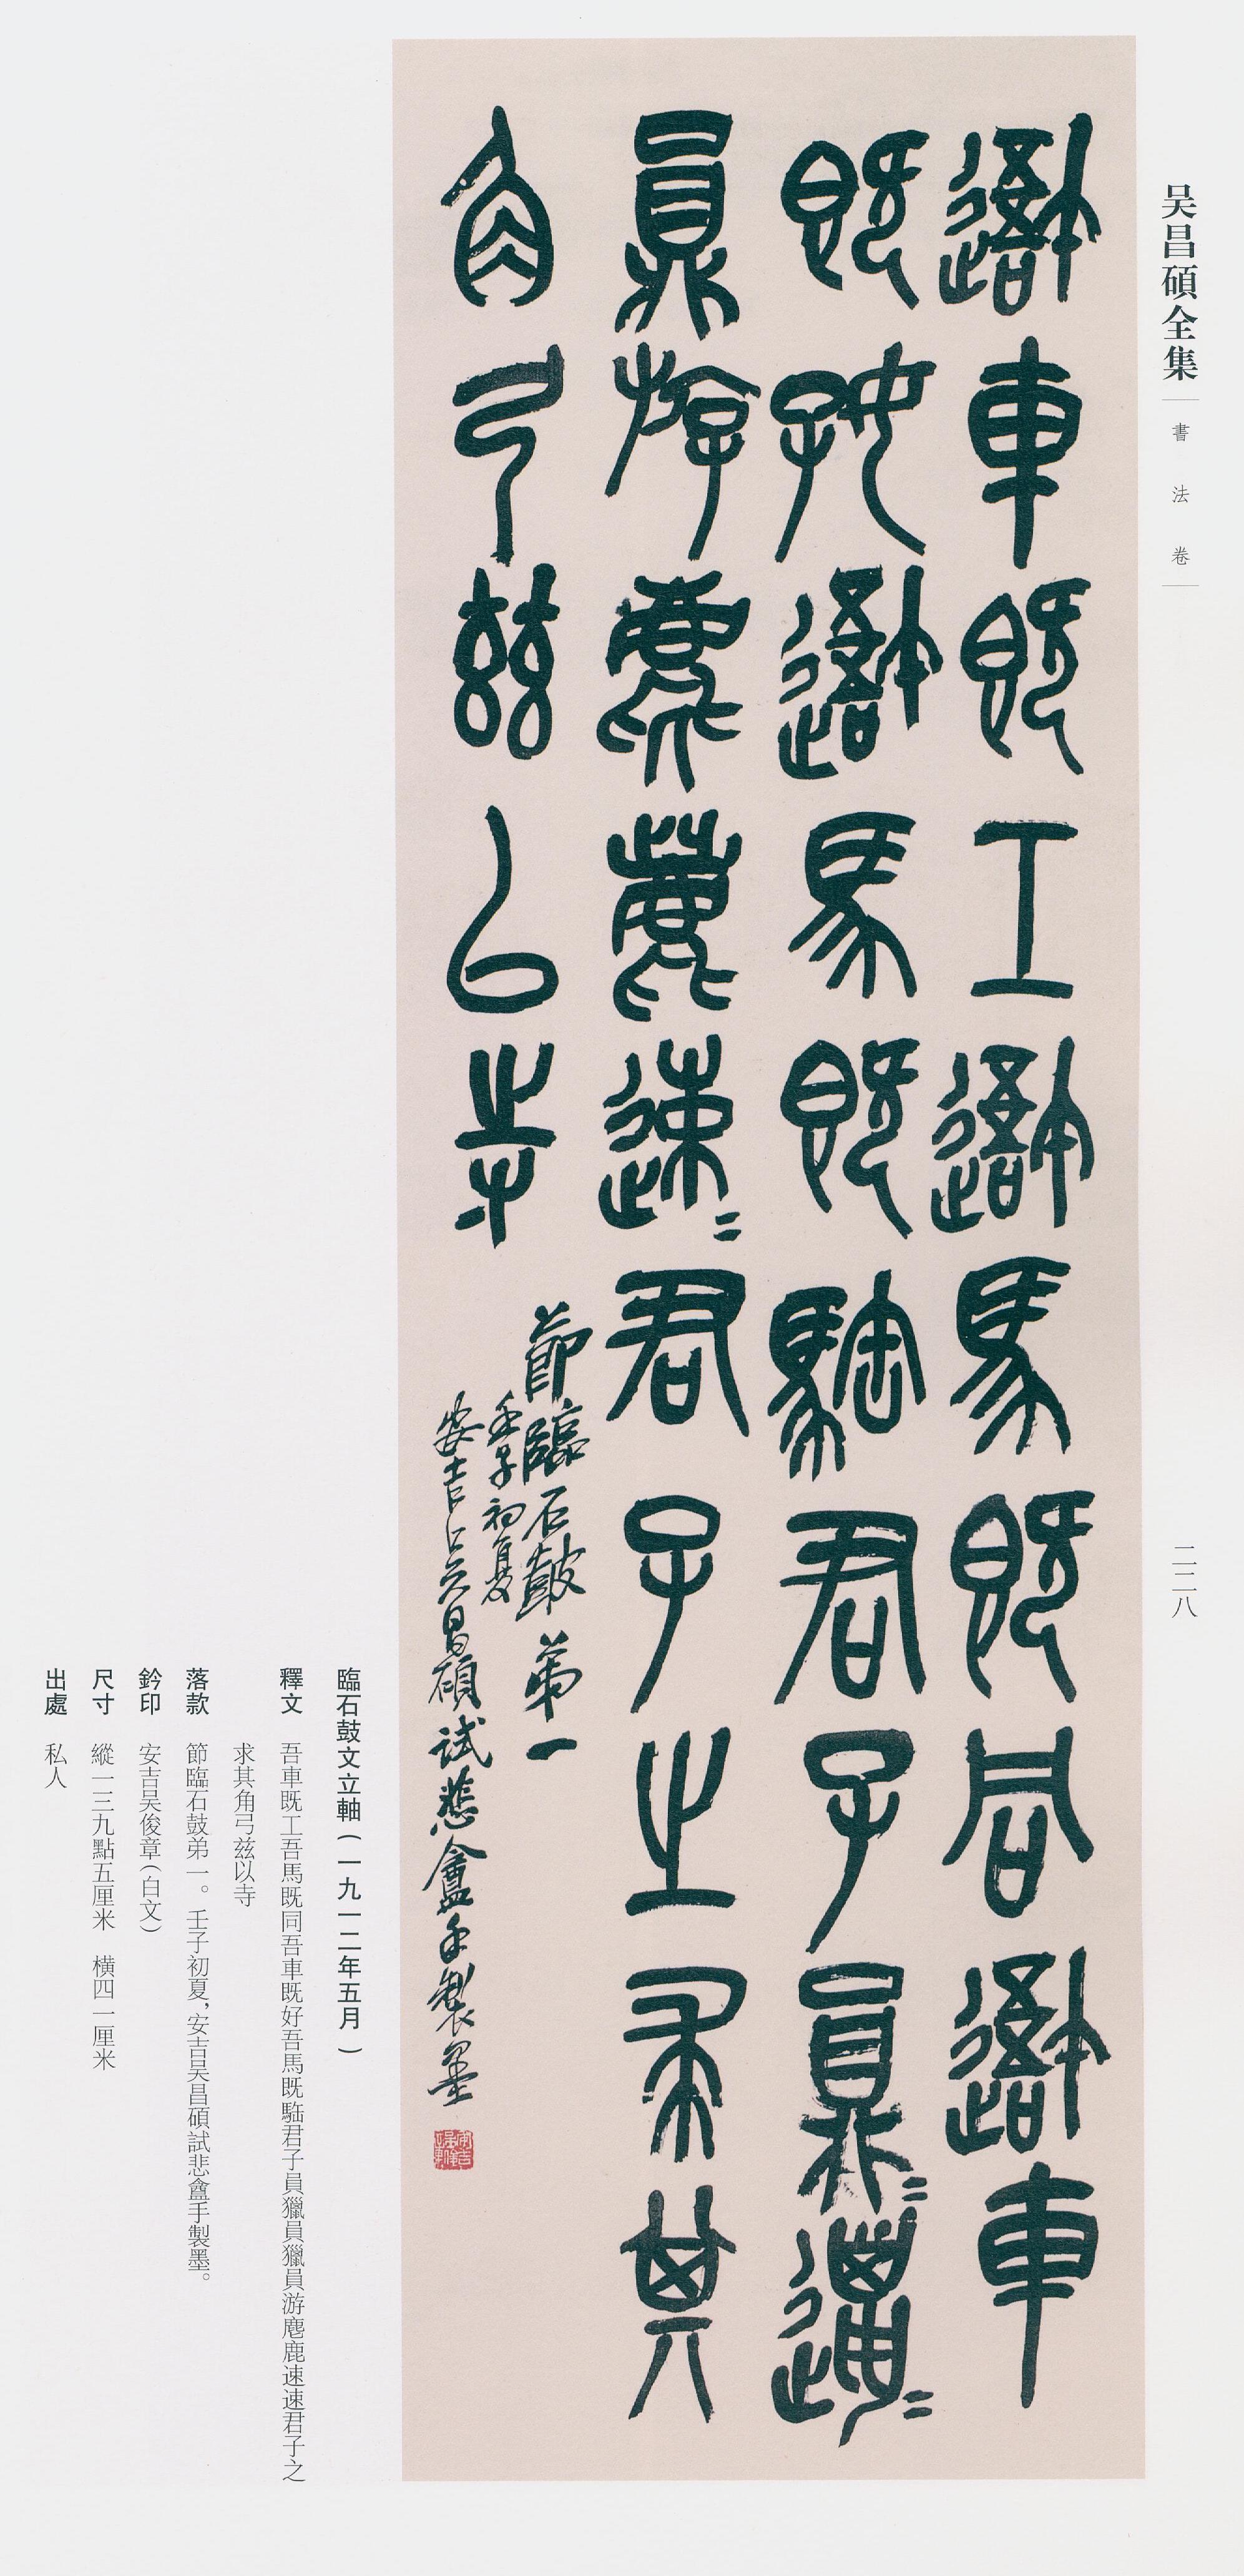 吴昌碩全集
書法卷
二二八
吾車既工吾馬既同吾車
既好吾馬既駋君子員=邋=
員斿麀鹿速=君子之求其
角弓兹以寺
節臨石鼓弟一
壬子初夏
安吉吴昌碩試悲盦手製墨
臨石鼓文立軸（一九一二年五月）
釋文　吾車既工吾馬既同吾車既好吾馬既駋君子員獵員獵員游麀鹿速速君子之
求其角弓兹以寺
落款　節臨石鼓弟一。壬子初夏，安吉吴昌碩試悲盦手製墨。
鈐印　安吉吴俊章（白文）
尺寸　縱一三九點五厘米　横四一厘米
出處　私人